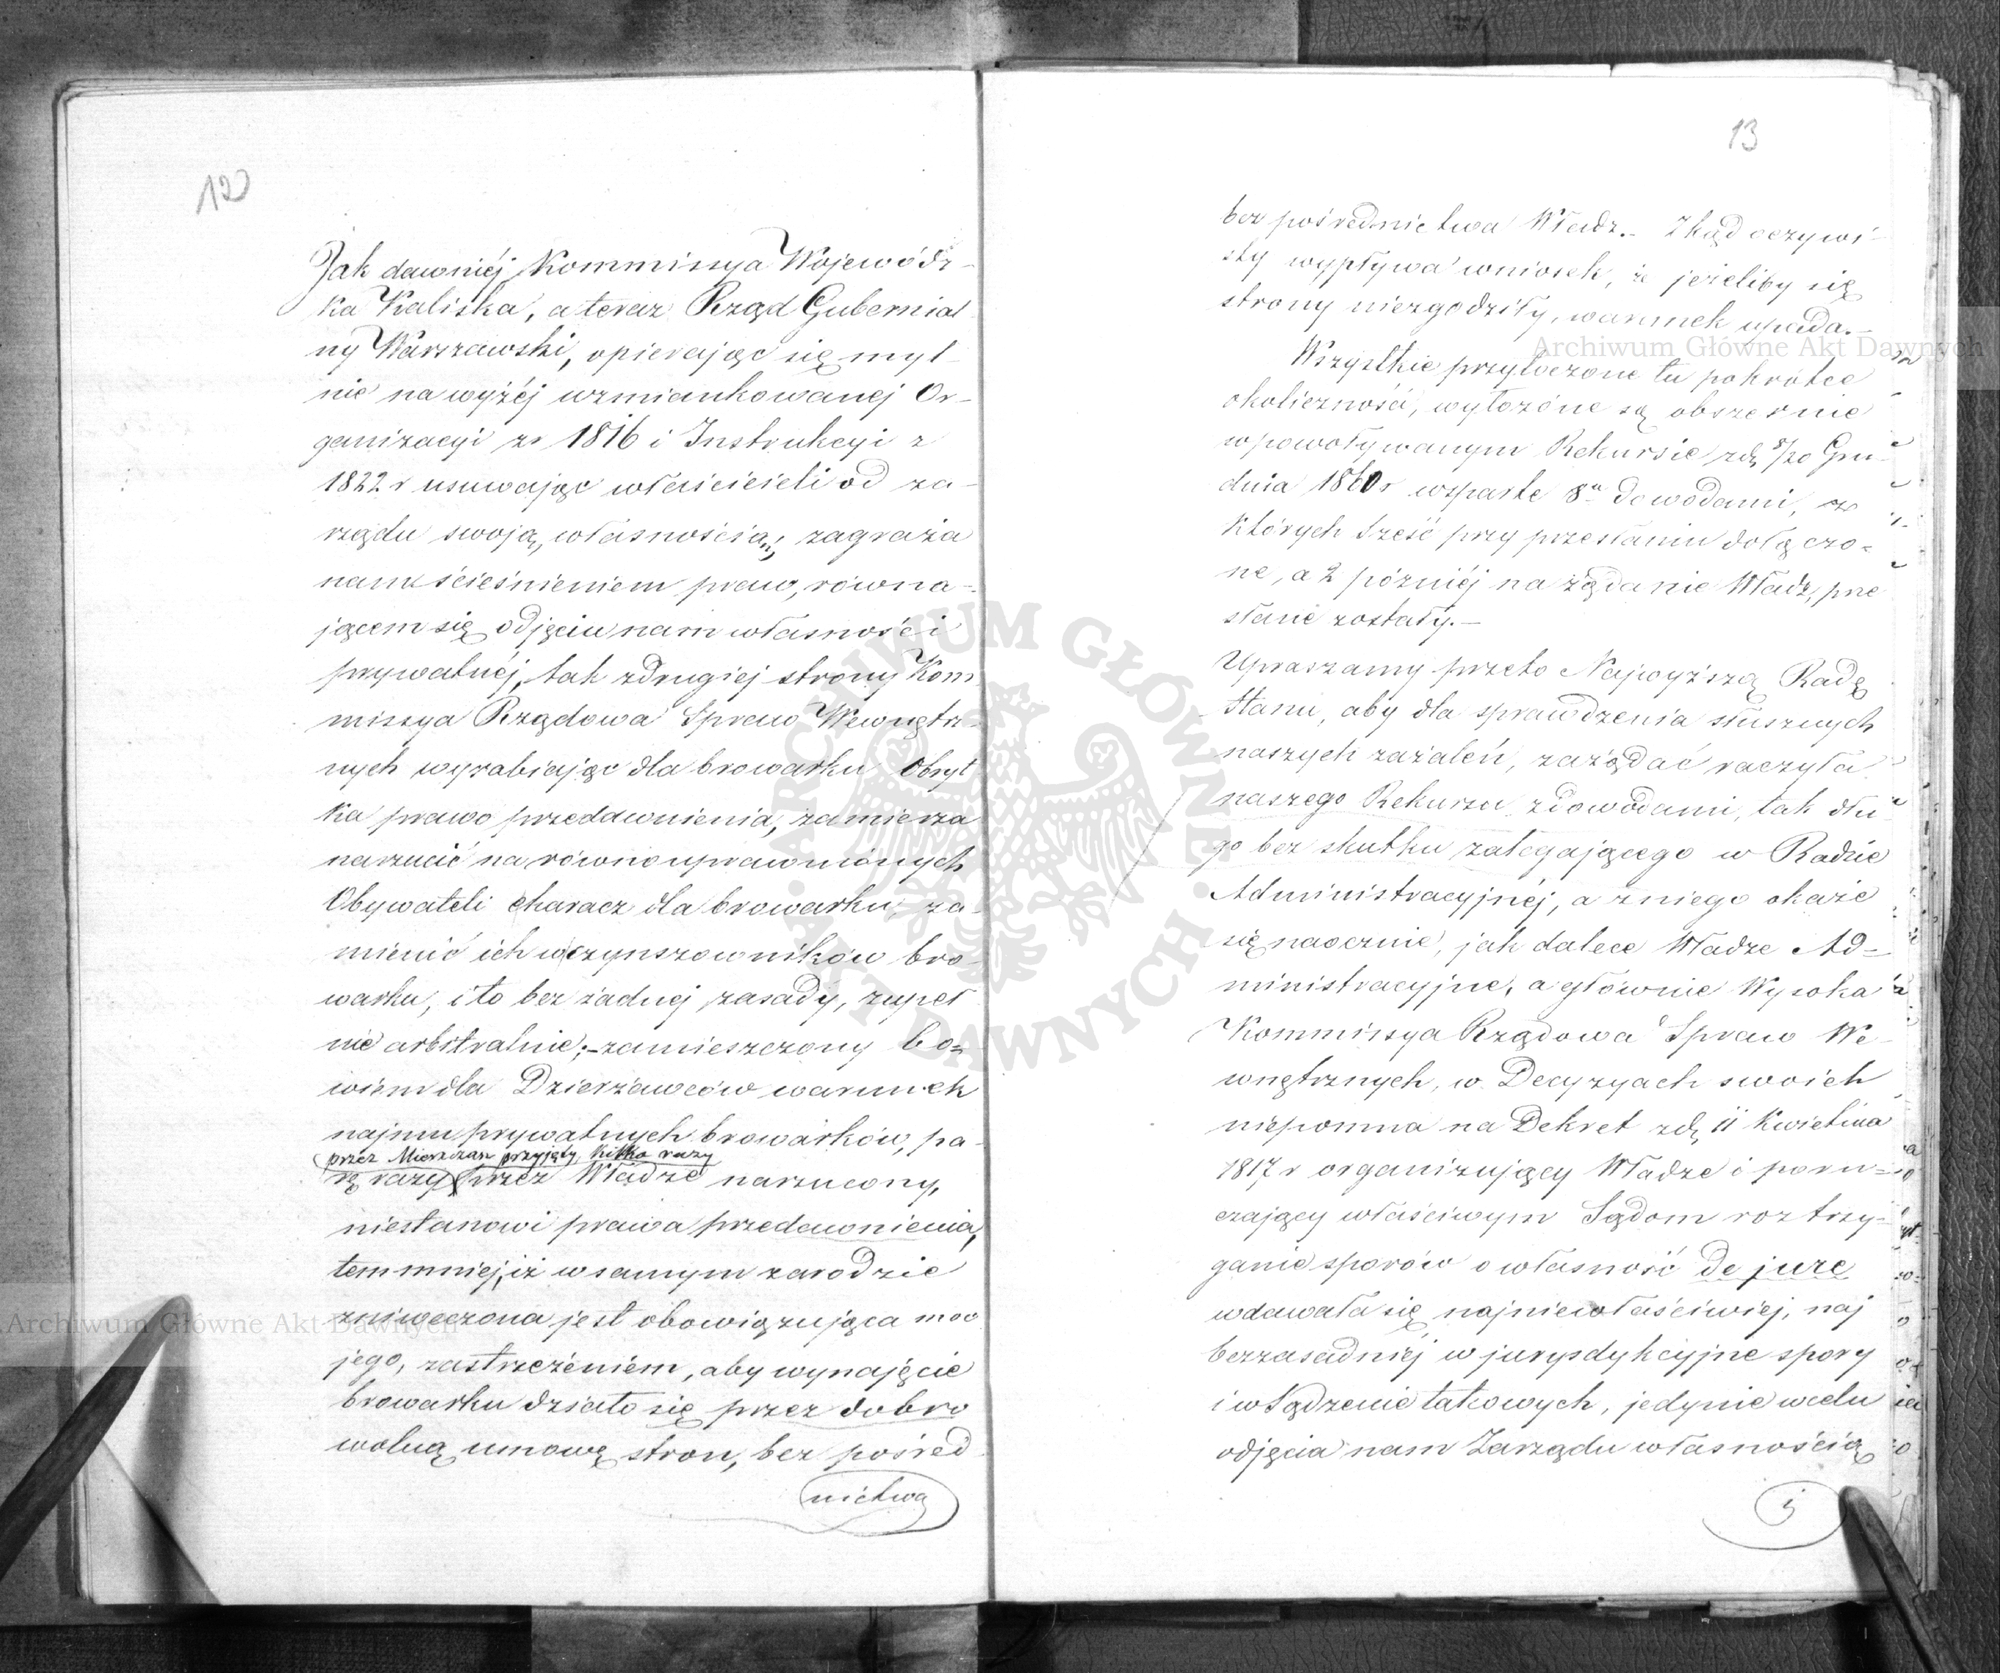 12
Jak dawniéj Kommissya Wojewódz-
ka Kaliska, a teraz Rząd Gubernial
ny Warszawski, opierając się myl-
nie na wyżéj wzmiankowanej Or-
ganizacyi zr 1816 i Instrukcyi z
1822 r usuwając właścicieli od za-
rządu swoją własnością; zagraża
nam ścieśnieniem praw, równa-
jącem się odjęciu nam własności
prywatnéj, tak zdrugiej strony Kom
missya Rządowa Spraw Wewnętrz-
nych wyrabiając dla browarku Obryt
ka prawo przedawnienia, zamierza
narzucić na równouprawnionych
Obywateli characz dla browarku, za-
mienić ich w czynszowników bro-
warku, i to bez żadnej zasady, zupeł
nie arbitralnie; - zamieszczony bo=
wiem dla Dzierżawców warunek
najmu prywatnych browarków, pa-
przez Mieszczan przyjęty, kilka razy
rę razy przez Władze narzucony,
niestanowi prawa przedawnienia,
tem mniej, iż w samym zarodzie
zniweczona jest obowiązująca moc
jego, zastrzeżeniem, aby wynajęcie
browarku działo się przez dobro
wolną umowę stron, bez pośred
nictwa
13
bez pośrednictwa Władz. - Zkąd oczywi-
sty wypływa wniosek, że jeżeliby się
strony niezgodziły, warunek upada. -
Wszystkie przytoczone tu pokrótce
okoliczności, wyłożone są obszernie
w powoływanym Rekursie zd. 8/20 Gru
dnia 1860 r wsparte 8u dowodami, z
których sześć przy przesłaniu dołączo=
ne, a 2 później na żądanie Władz, prze
słane zostały. -
Upraszamy przeto Najwyższą Radę
Stanu, aby dla sprawdzenia słusznych
naszych zażaleń, zażądać raczyła
naszego Rekursu zdowodami, tak dłu
go bez skutku zalegającego w Radzie
Administracyjnéj, a zniego okaże
się naocznie, jak dalece Władze Ad=
ministracyjne, a głównie Wysoka
Kommissya Rządowa Spraw We-
wnętrznych, w Decyzyach swoich
niepomna na Dekret zd. 11 Kwietnia
1817 r organizujący Władze i poru=
czający właściwym Sądom roztrzy-
ganie sporów o własność de jure
wdawała się najniewłaściwiej, naj
bezzasadniéj w jurysdykcyjne spory
i w sądzenie takowych, jedynie w celu
odjęcia nam Zarządu własnością
i
Archiwum Główne Akt Dawnych
Archiwum Główne Akt Dawnych
ARCHIWUM GŁÓWNE · AKT DAWNYCH ·